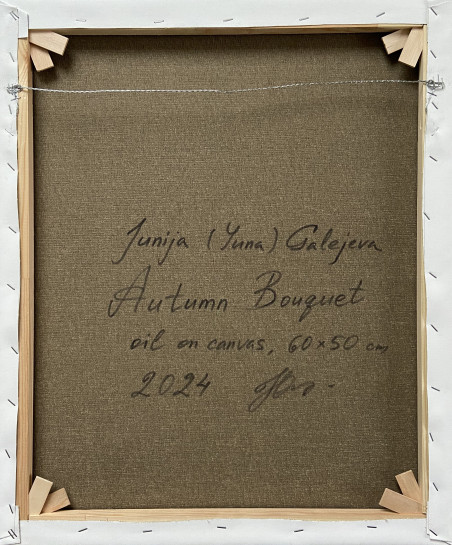 Junija (Yuna) Galejeva
Autumn Bouquet
oil on canvas, 60×50 cm
2024